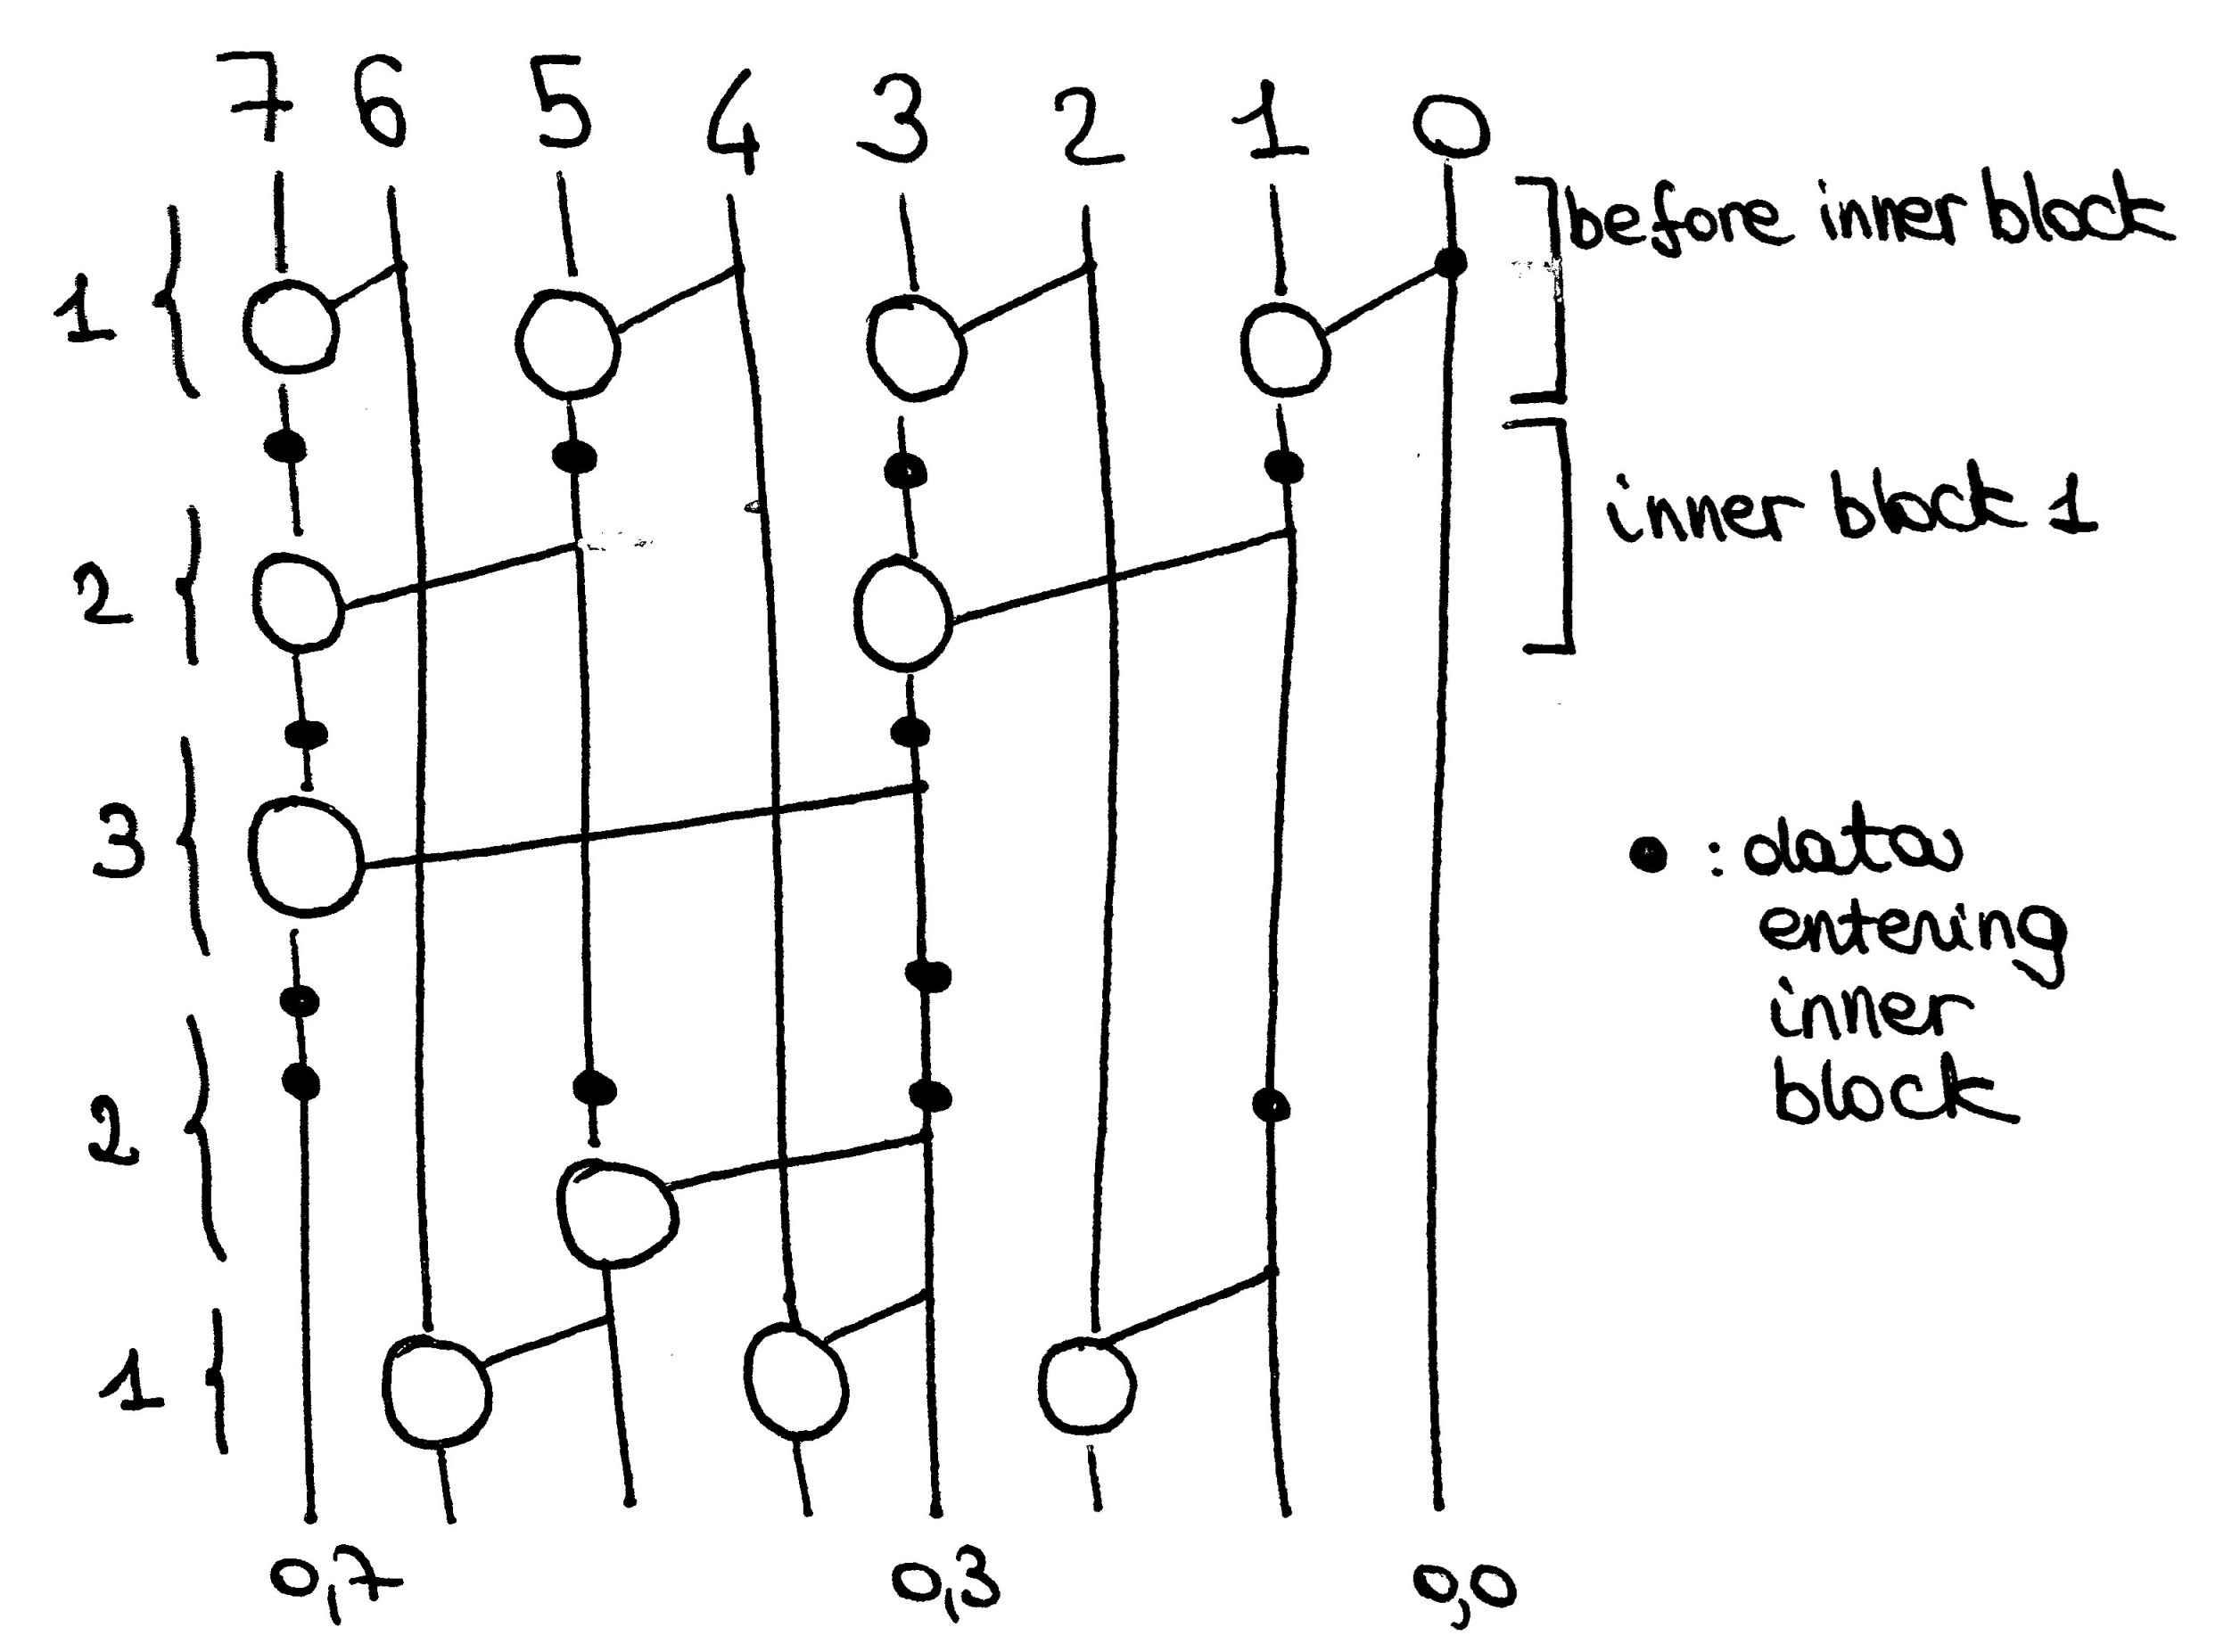 7 6 5 4 3 2 1 0
before inner block
1
inner block 1
2
3
• : data
entering
inner
block
2
1
0,7 0,3 0,0